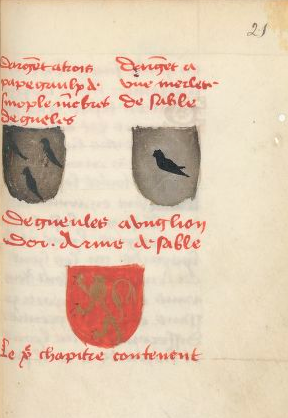 21
dargēt a trois
papegaulx d.
sinople mēbres
de gueles
Dargēt a
vne merlete
de sable
De gueules a vng lion
Dor. Arme de sable
Le xe chapitre contenent